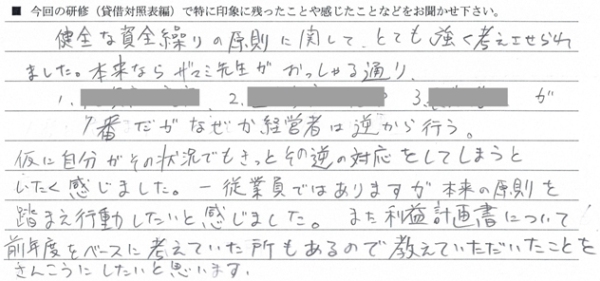 ■ 今回の研修（貸借対照表編）で特に印象に残ったことや感じたことなどをお聞かせ下さい。
健全な資金繰りの原則に関して、とても強く考えさせられ
ました。本来ならザマミ先生がおっしゃる通り、
1. 2. 3. が
1番だがなぜか経営者は逆から行う。
仮に自分がその状況でもきっとその逆の対応をしてしまうと
いたく感じました。一従業員ではありますが本来の原則を
踏まえ行動したいと感じました。また利益計画書について
前年度をベースに考えていた所もあるので教えていただいたことを
さんこうにしたいと思います。